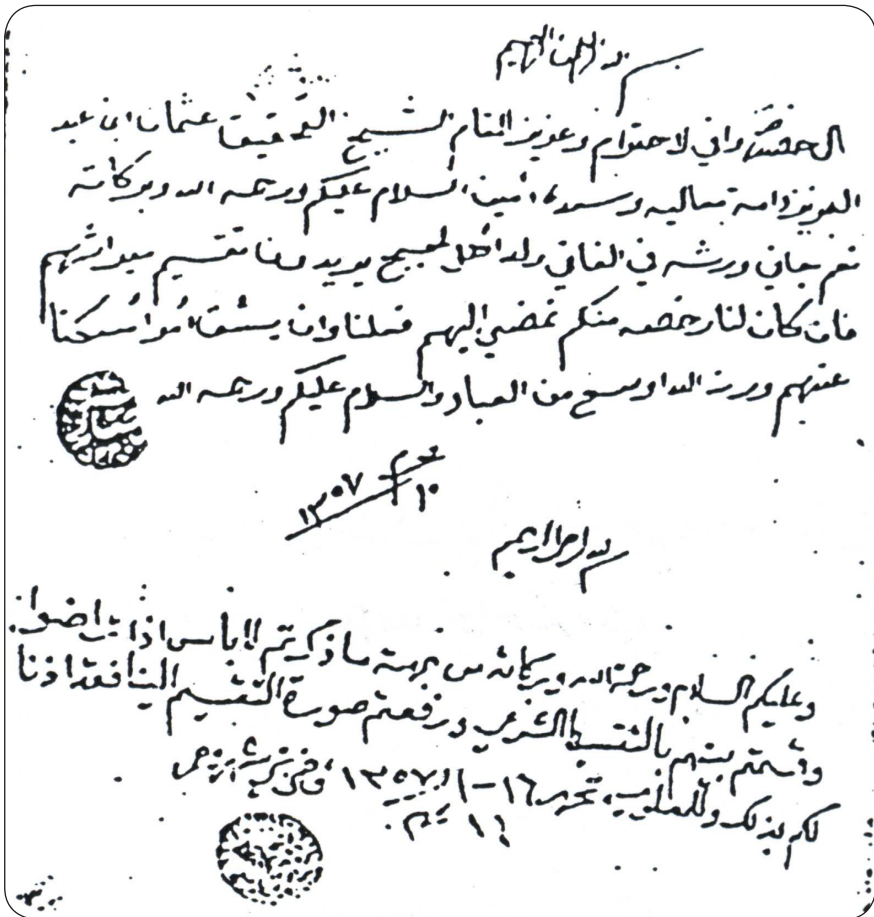 بسم الله الرحمن الرحيم
الى حضرة وافي لاحتوام وعزيز المقام الشيخ عثمان ابن عبد
العزيز دامة معاليه امين السلام عليكم ورحمة الله وبركاته
نعم ورثه في الغاني ولد اهل يريدوننا تقسيم ميراثهم
فان كان لنا رخصه منكم نمضي اليهم فعلنا وان امسكنا
عنهم ورزق الله اوسع من العباد والسلام عليكم ورحمة الله
١٠ محرم ١٣٥٧
بسم الله الرحمن الرحيم
وعليكم السلام ورحمة الله وبركاته من جهة ما ذكرتم لا باس اذا تراضوا
وقسمتم بينهم بالقسط الشرعي ورفعتم صورة التقسيم الينا فقد اذنا
لكم بذلك تحرير ١٦-١-١٣٥٧